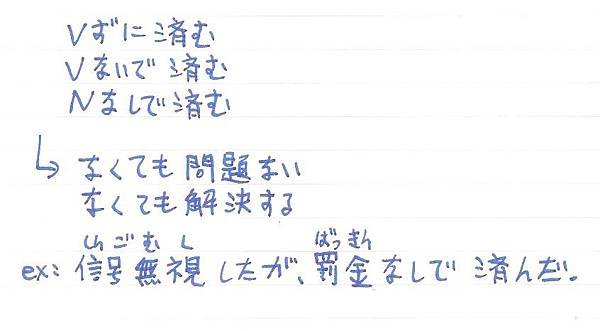 Vずに済む
Vないで済む
Nなしで済む
↳ なくても問題ない
なくても解決する
しんごうむし ばっきん
ex: 信号無視したが、罰金なしで済んだ。